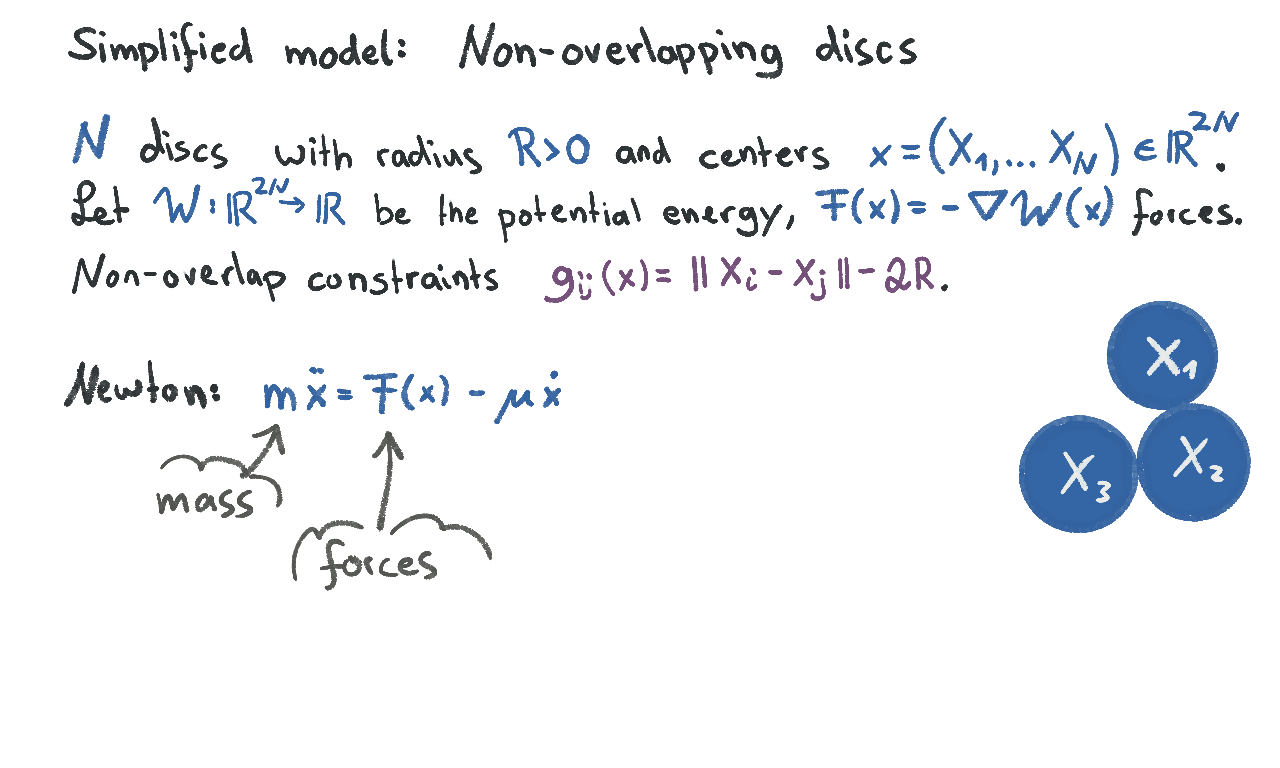 Simplified model: Non-overlapping discs
N discs with radius R>0 and centers x=(X₁,... X_N) ∈ ℝ²ᴺ.
Let W: ℝ²ᴺ→ ℝ be the potential energy, F(x)= -∇W(x) forces.
Non-overlap constraints g_ij(x)= ||X_i - X_j|| - 2R.
Newton: mẍ = F(x) - μẋ
mass
forces
X₁
X₂
X₃